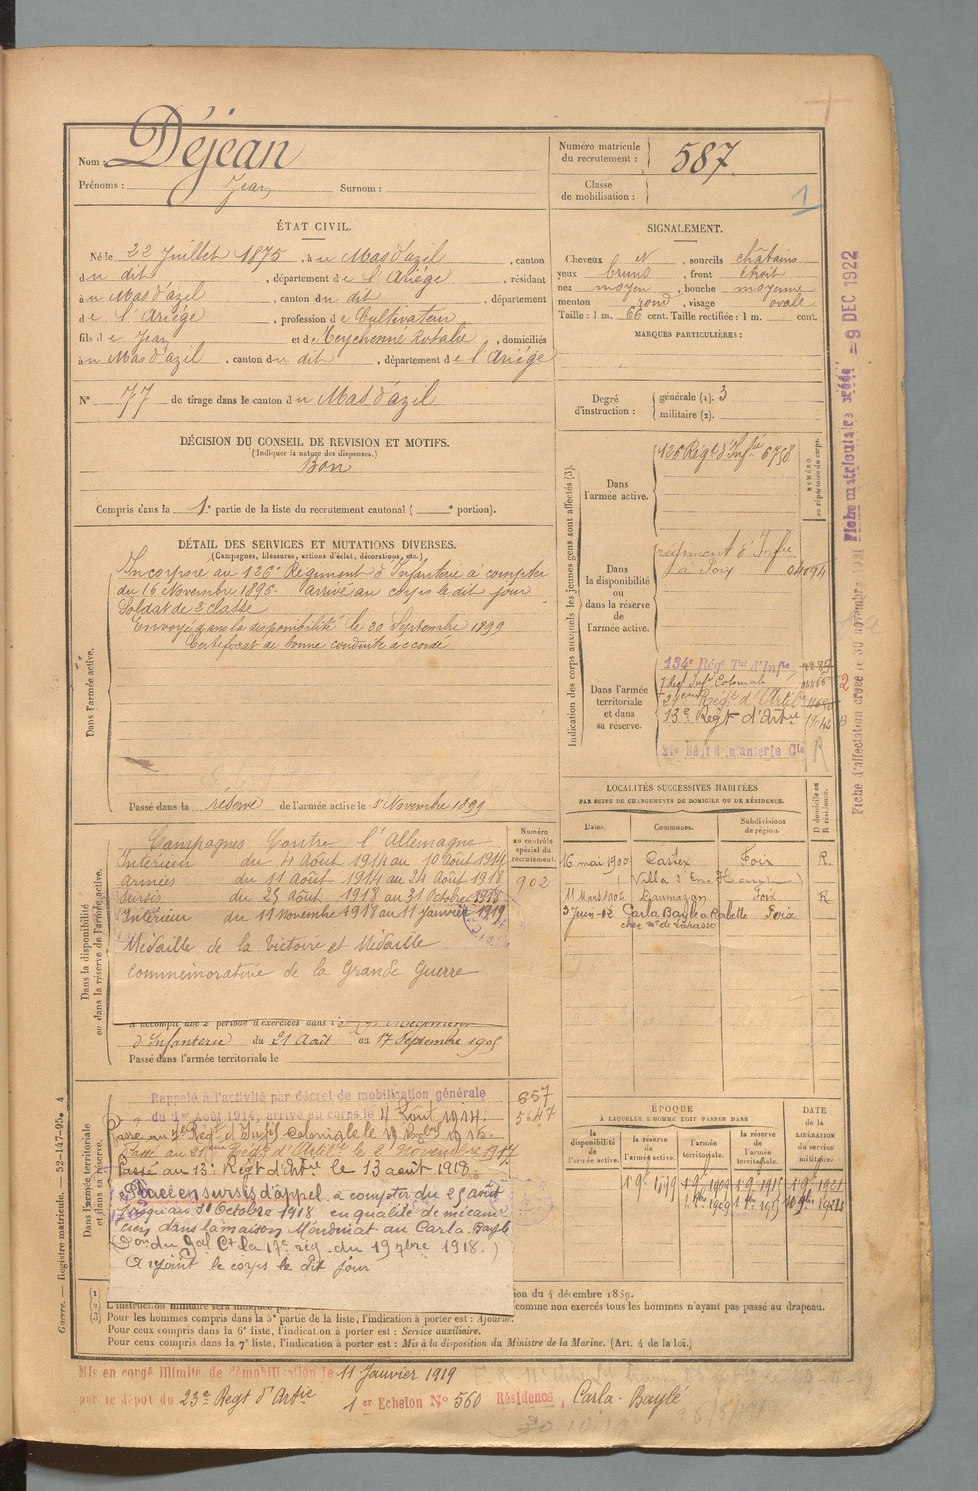 Nom : Déjean
Prénoms : Jean Surnom :
Numéro matricule du recrutement : 587
Classe de mobilisation :
1
ÉTAT CIVIL.
Né le 22 Juillet 1875, à u Mas d'azil, canton
d u dit, département d e l'Ariège, résidant
à u Mas d'azil, canton d u dit, département
d e l'Ariège, profession d e Cultivateur
fils d e Jean et d e Teychenne Rosalie, domiciliés
à u Mas d'azil, canton d u dit, département d e l'Ariège
N° 77 de tirage dans le canton d u Mas d'azil
SIGNALEMENT.
Cheveux et, sourcils châtains
yeux bruns, front étroit
nez moyen, bouche moyenne
menton rond, visage ovale
Taille : 1 m. 66 cent. Taille rectifiée : 1 m. cent.
MARQUES PARTICULIÈRES :
Degré d'instruction : générale (1). 3
militaire (2).
DÉCISION DU CONSEIL DE REVISION ET MOTIFS.
(Indiquer la nature des dispenses.)
Bon
Compris dans la 1e partie de la liste du recrutement cantonal ( e portion).
DÉTAIL DES SERVICES ET MUTATIONS DIVERSES.
(Campagnes, blessures, actions d'éclat, décorations, etc.)
Dans l'armée active.
Incorporé au 126e Régiment d'Infanterie à compter
du 16 Novembre 1896. arrivé au corps le dit jour
Soldat de 2e classe
Envoyé dans la disponibilité le 30 Septembre 1899
Certificat de bonne conduite accordé
Passé dans la réserve de l'armée active le 1er Novembre 1899
Indication des corps auxquels les jeunes gens sont affectés (3).
NUMÉRO au répertoire du corps.
Dans l'armée active.
126 Régt d'Infie 6758
Dans la disponibilité ou dans la réserve de l'armée active.
régiment d'Infie
04094
Dans l'armée territoriale et dans sa réserve.
134e Régt Tal d'Infie
7 Régt Infie Coloniale
21eme Régt d'Artie
13e Régt d'Artie
21e Régt d'Infanterie Cle
R
2
Fiche matriculaire
= 9 DEC 1922
Fiche d'affectation créée le 30 novembre
Dans la disponibilité ou dans la réserve de l'armée active.
Numéro au contrôle spécial du recrutement.
902
Campagnes Contre l'Allemagne
Intérieur du 4 Août 1914 au 10 Août 1914
Armées du 11 Août 1914 au 24 Août 1918
Sursis du 25 Août 1918 au 31 Octobre 1918
Intérieur du 11 Novembre 1918 au 11 Janvier 1919
Médaille de la Victoire et Médaille
commémorative de la Grande Guerre
A accompli une 2e période d'exercices dans l
d'Infanterie du 21 Août au 17 Septembre 1905
Passé dans l'armée territoriale le
LOCALITÉS SUCCESSIVES HABITÉES
PAR SUITE DE CHANGEMENTS DE DOMICILE OU DE RÉSIDENCE.
Dates. Communes. Subdivisions de région. D domicile ou R résidence.
16 mai 1900 Castex Foix R.
11 Mars 1906 Daumazan Foix R
3 Juin -12 Carla Bayle Foix
chez Mr de Larasse
Dans l'armée territoriale et dans sa réserve.
Rappelé à l'activité par décret de mobilisation générale
du 1er Août 1914, arrivé au corps le 4 Août 1914.
657
5647
Passé au 21eme Régt d'Artie le 2 Novembre 1917
Passé au 13e Régt d'Artie le 13 août 1918.
Placé en sursis d'appel, à compter du 25 août
jusqu'au 31 Octobre 1918 en qualité de mécani
cien dans la maison au Carla-Bayle
(Don du Gal Ct la 17e rég. du 19 7bre 1918.)
A rejoint le corps le dit jour
ÉPOQUE
À LAQUELLE L'HOMME DOIT PASSER DANS
la disponibilité de l'armée active. la réserve de l'armée active. l'armée territoriale. la réserve de l'armée territoriale.
DATE de la LIBÉRATION du service militaire.
1 9e 1899
ion du 4 décembre 1889.
comme non exercés tous les hommes n'ayant pas passé au drapeau.
(3) Pour les hommes compris dans la 5e partie de la liste, l'indication à porter est : Ajourné.
Pour ceux compris dans la 6e liste, l'indication à porter est : Service auxiliaire.
Pour ceux compris dans la 7e liste, l'indication à porter est : Mis à la disposition du Ministre de la Marine. (Art. 4 de la loi.)
Guerre. — Registre matricule. — 52-147-95. 4
Mis en congé illimité de démobilisation le 11 Janvier 1919
par le dépôt du 23e Régt d'Artie 1er Echelon N° 560 Résidence, Carla-Baylé